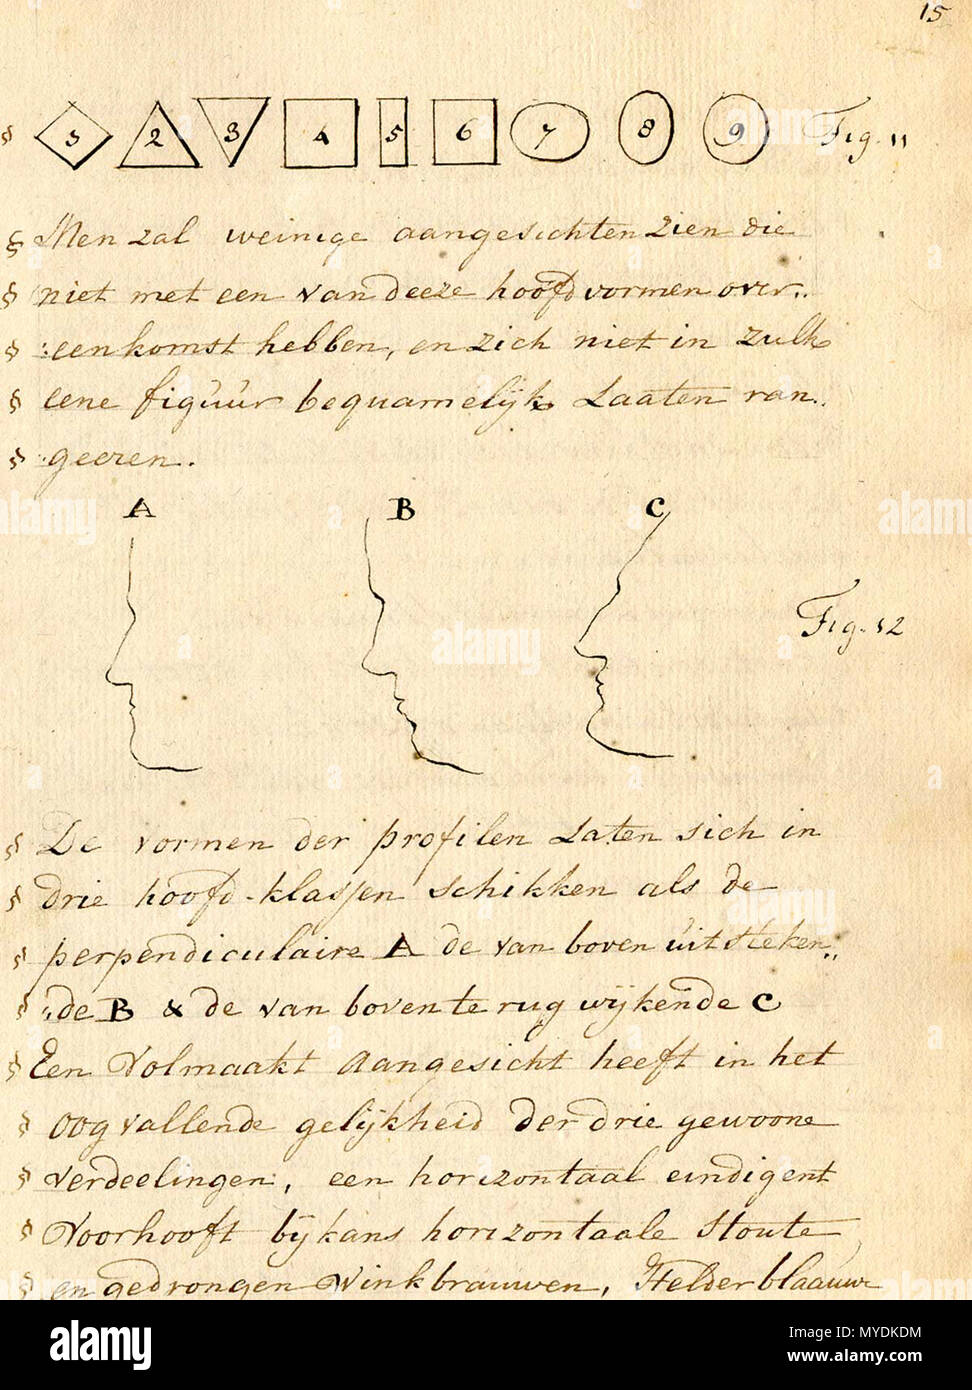 15
1 2 3 4 5 6 7 8 9 Fig. 11
§ Men zal weinige aangesichten zien die
§ niet met een van deeze hoofdvormen over„
§ „eenkomst hebben, en zich niet in zulk
§ eene figuur bequamelijk Laaten ran„
§ „geeren.
A B C
Fig. 12
§ De vormen der profilen Laten sich in
§ drie hoofd-klassen schikken als de
§ perpendiculaire A de van boven uitsteken„
§ „de B & de van boven te rug wijkende C
§ Een Volmaakt aangesicht heeft in het
§ oogvallende gelijkheid der drie gewoone
§ verdeelingen, een horizontaal eindigent
§ Voorhooft bijkans horizontaale stoute
§ en gedrongen Winkbrauwen, Helderblaauwe
alamy
Image ID: MYDKDM
www.alamy.com